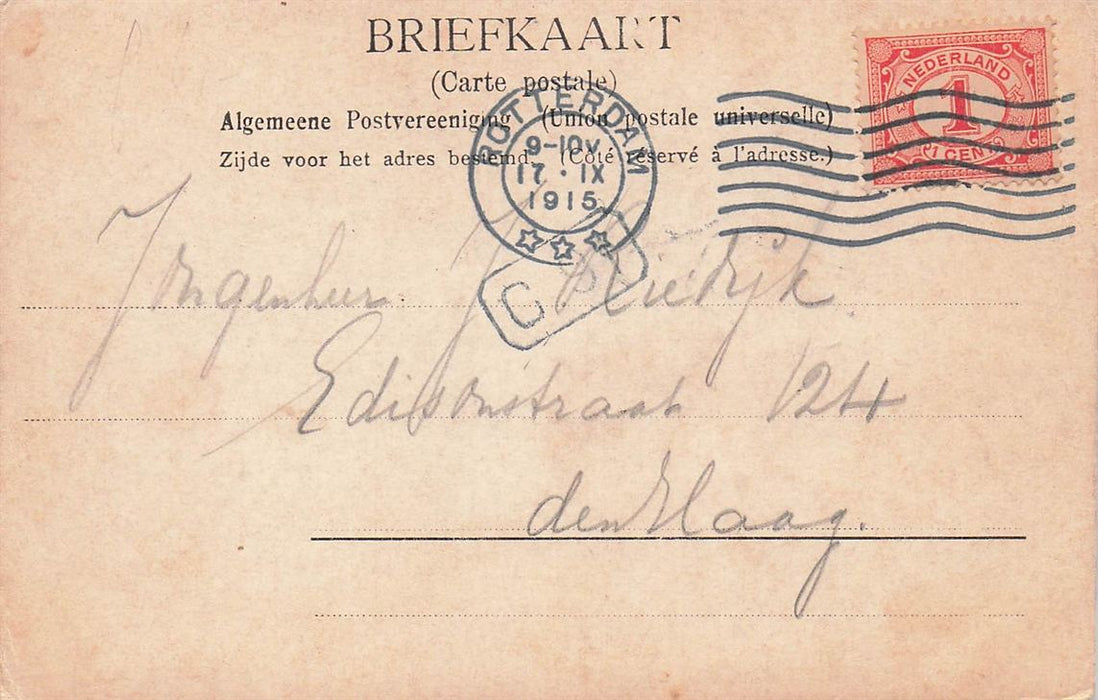 BRIEFKAART
(Carte postale)
Algemeene Postvereeniging (Union postale universelle)
Zijde voor het adres bestemd. (Côté réservé à l'adresse.)
NEDERLAND
1
1 CENT
ROTTERDAM
9-10V
17·IX
1915
C
Jongenheer J
Edisonstraat 124
den Haag.